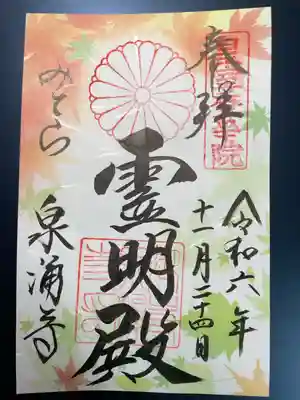 奉拝
令和六年
十一月二十四日
霊明殿
みてら
泉涌寺